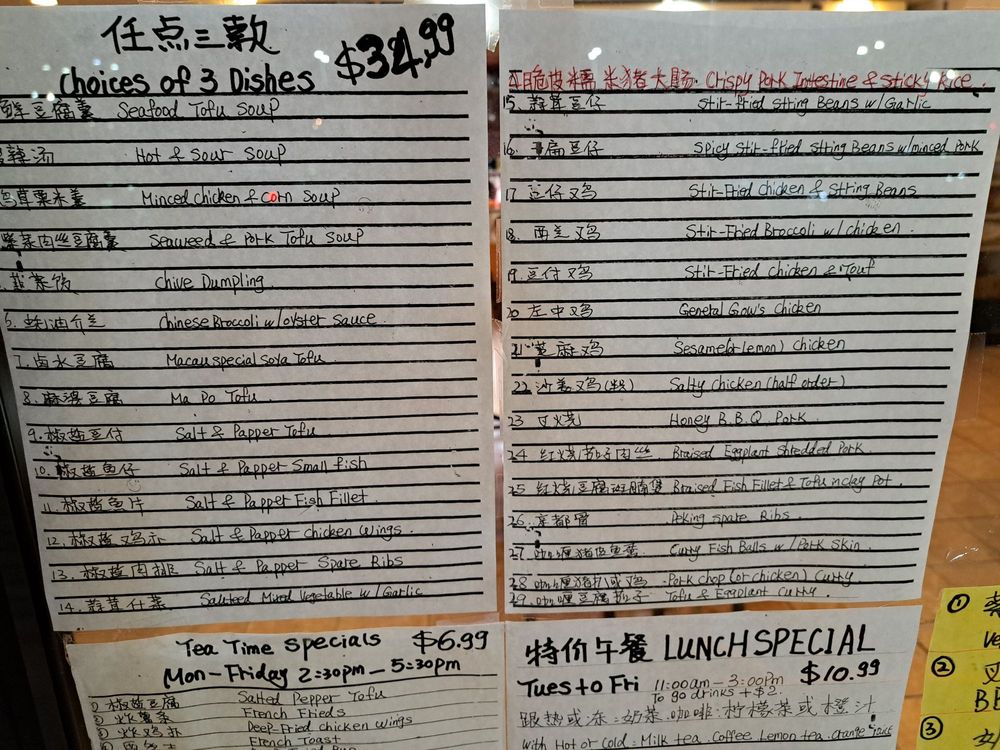 任点三款 $34.99
Choices of 3 Dishes
鲜豆腐羹 Seafood Tofu Soup
辣汤 Hot & Sour Soup
鸡茸粟米羹 Minced chicken & corn Soup
紫菜肉丝豆腐羹 Seaweed & Pork Tofu Soup
韮菜饺 Chive Dumpling
6. 蚝油介兰 Chinese Broccoli w/oyster Sauce
7. 卤水豆腐 Macau special Soya Tofu
8. 麻婆豆腐 Ma Po Tofu
9. 椒盐豆付 Salt & Papper Tofu
10. 椒盐鱼仔 Salt & Papper Small fish
11. 椒盐鱼片 Salt & Papper Fish Fillet
12. 椒盐鸡亦 Salt & Papper chicken wings
13. 椒盐肉排 Salt & Papper Spare Ribs
14. 蒜茸什菜 Sauteed Mixed Vegetable w/Garlic
脆皮糯米猪大肠 Crispy Pork Intestine & Sticky Rice
15. 蒜茸豆仔 Stir-fried String Beans w/Garlic
16. 干扁豆仔 Spicy Stir-fried String Beans w/minced Pork
17. 豆仔鸡 Stir-Fried chicken & String Beans
18. 西兰鸡 Stir-Fried Broccoli w/chicken
19. 豆付鸡 Stir-Fried chicken & Touf
20. 左中鸡 General Gow's chicken
21. 芝麻鸡 Sesame(or lemon) chicken
22. 沙姜鸡(半) Salty chicken (half order)
23. 叉烧 Honey B.B.Q. Pork
24. 红烧茄子肉丝 Braised Eggplant Shredded Pork
25. 红烧豆腐班腩煲 Braised Fish Fillet & Tofu in clay Pot
26. 京都骨 Peking Spare Ribs
27. 咖喱猪皮鱼蛋 Curry Fish Balls w/Pork Skin
28. 咖喱猪扒或鸡 Pork chop (or chicken) Curry
29. 咖喱豆腐茄子 Tofu & Eggplant Curry
Tea Time Specials $6.99
Mon-Friday 2:30pm - 5:30pm
椒盐豆腐 Salted Pepper Tofu
炸薯条 French Frieds
炸鸡亦 Deep-Fried chicken wings
French Toast
特价午餐 LUNCH SPECIAL
Tues to Fri 11:00am - 3:00pm $10.99
To go drinks + $2.
跟热或冻:奶茶.咖啡.柠檬茶或橙汁
with Hot or Cold: Milk tea. Coffee. Lemon tea. orange juice
①
②
BB
③